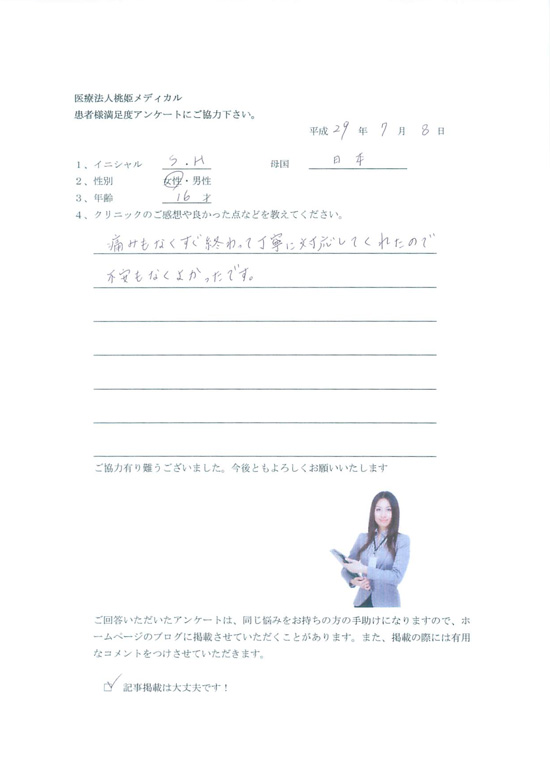 医療法人桃姫メディカル
患者様満足度アンケートにご協力下さい。
平成 29 年 7 月 8 日
1、イニシャル S.H 母国 日本
2、性別 女性・男性
3、年齢 16才
4、クリニックのご感想や良かった点などを教えてください。
痛みもなくすぐ終わって丁寧に対応してくれたので
不安もなくよかったです。
ご協力有り難うございました。今後ともよろしくお願いいたします
ご回答いただいたアンケートは、同じ悩みをお持ちの方の手助けになりますので、ホ
ームページのブログに掲載させていただくことがあります。また、掲載の際には有用
なコメントをつけさせていただきます。
☑ 記事掲載は大丈夫です!